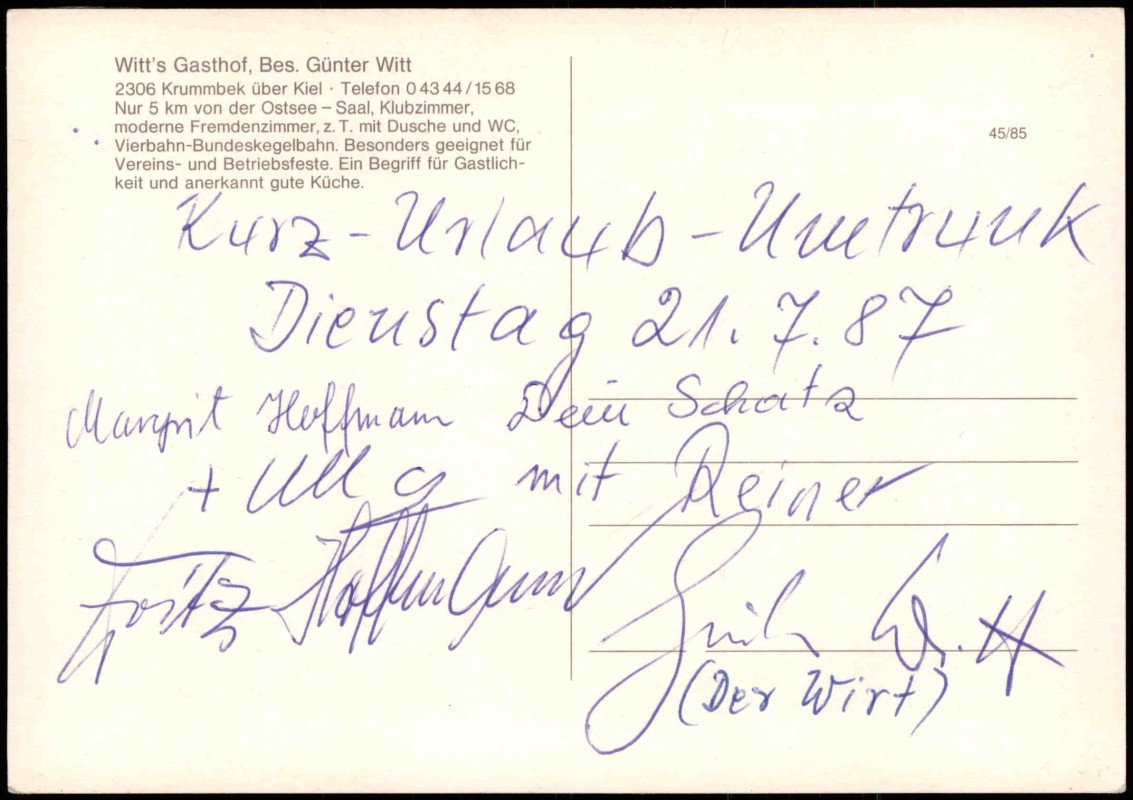 Witt's Gasthof, Bes. Günter Witt
2306 Krummbek über Kiel · Telefon 0 43 44 / 15 68
Nur 5 km von der Ostsee – Saal, Klubzimmer,
moderne Fremdenzimmer, z. T. mit Dusche und WC,
Vierbahn-Bundeskegelbahn. Besonders geeignet für
Vereins- und Betriebsfeste. Ein Begriff für Gastlich-
keit und anerkannt gute Küche.
45/85
Kurz-Urlaub-Umtrunk
Dienstag 21.7.87
Margrit Hoffmann Dein Schatz
+ mit Reiner
Fritz Hoffmann
Witt
(Der Wirt)